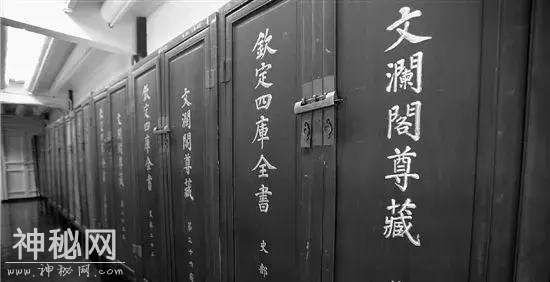 文瀾閣尊藏
欽定四庫全書
史部
文瀾閣尊藏
欽定四庫全書
文瀾閣尊藏
神秘网
www.神秘网.com